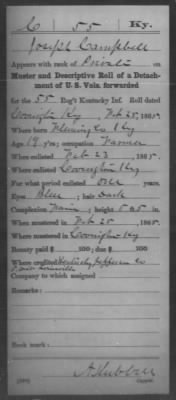 C 55 Ky.
Joseph Campbell
Appears with rank of Private on
Muster and Descriptive Roll of a Detachment
of U. S. Vols. forwarded
for the 55 Reg't Kentucky Inf. Roll dated
Covington Ky, Feb 25, 1865.
Where born Fleming Co Ky
Age 19 y'rs; occupation Farmer
When enlisted Feb 23, 1865.
Where enlisted Covington Ky
For what period enlisted one years.
Eyes Blue; hair Dark
Complexion Fair; height 5 ft. 5 in.
When mustered in Feb 25, 1865.
Where mustered in Covington Ky
Bounty paid $ 100; due $ 100
Where credited Kentucky Co
Company to which assigned
Remarks:
Book mark:
A Hubbell
Copyist.